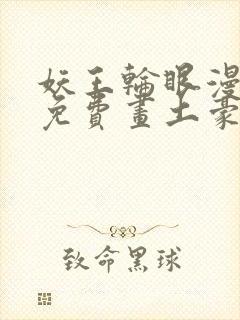 妖王輪眼漫
免費畫土豪
致命黑球